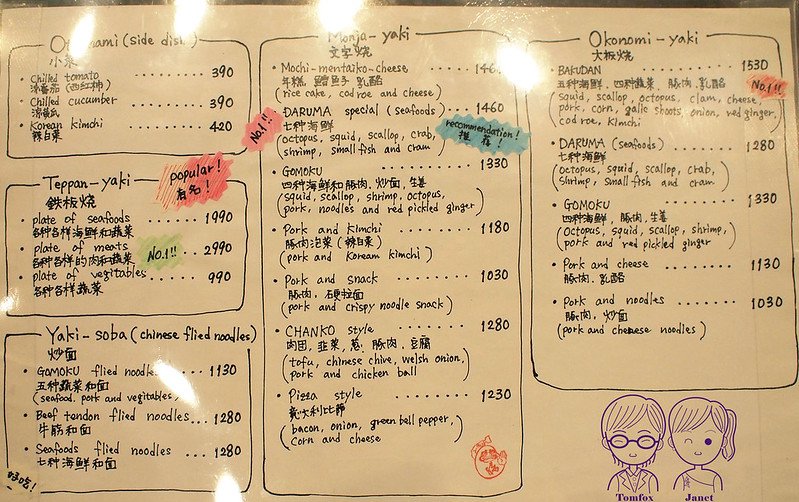 (side dish)
小菜
Chilled tomato 390
凉番茄 (西紅柿)
Chilled cucumber 390
凉黄瓜
Korean kimchi 420
辣白菜
Teppan-yaki
鉄板烧
popular!
有名!
plate of seafoods 1990
各种各样海鲜和蔬菜
plate of meats 2990
各种各样的肉和蔬菜
No.1!!
plate of vegitables 990
各种各样蔬菜
Yaki-soba (chinese flied noodles)
炒面
GOMOKU flied noodles 1130
五种蔬菜和面
(seafood. pork and vegitables)
Beef tendon flied noodles 1280
牛筋和面
Seafoods flied noodles 1280
七种海鲜和面
好吃!
Monja-yaki
文字烧
Mochi-mentaiko-cheese
年糕 鳕鱼子 乳酪
(rice cake, cod roe and cheese)
No.1!!
DARUMA special (seafoods) 1460
七种海鲜
(octopus, squid, scallop, crab,
shrimp, small fish and cram)
recommendation!
推荐!
GOMOKU 1330
四种海鲜和豚肉. 炒面. 生姜
(squid, scallop, shrimp, octopus,
pork, noodles and red pickled ginger)
Pork and Kimchi 1180
豚肉泡菜 (辣白菜)
(pork and Korean kimchi)
Pork and Snack 1030
豚肉. 硬粒面
(pork and crispy noodle snack)
CHANKO style 1280
肉团, 韭菜, 葱, 豚肉, 豆腐
(tofu, chinese chive, welsh onion,
pork and chicken ball)
Pizza style 1230
意大利比節
(bacon, onion, green bell pepper,
corn and cheese)
Okonomi-yaki
大板烧
BAKUDAN 1530
五种海鲜, 四种蔬菜, 豚肉, 乳酪
No.1!!
(squid, scallop, octopus, clam, cheese,
pork, corn, galic shoots, onion, red ginger,
cod roe, kimchi
DARUMA (seafoods) 1280
七种海鲜
(octopus, squid, scallop, crab,
shrimp, small fish and cram)
GOMOKU 1330
四种海鲜, 豚肉, 生姜
(octopus, squid, scallop, shrimp,
pork and red pickled ginger)
Pork and cheese 1130
豚肉. 乳酪
Pork and noodles 1030
豚肉, 炒面
(pork and chenese noodles)
Tomfox
Janet